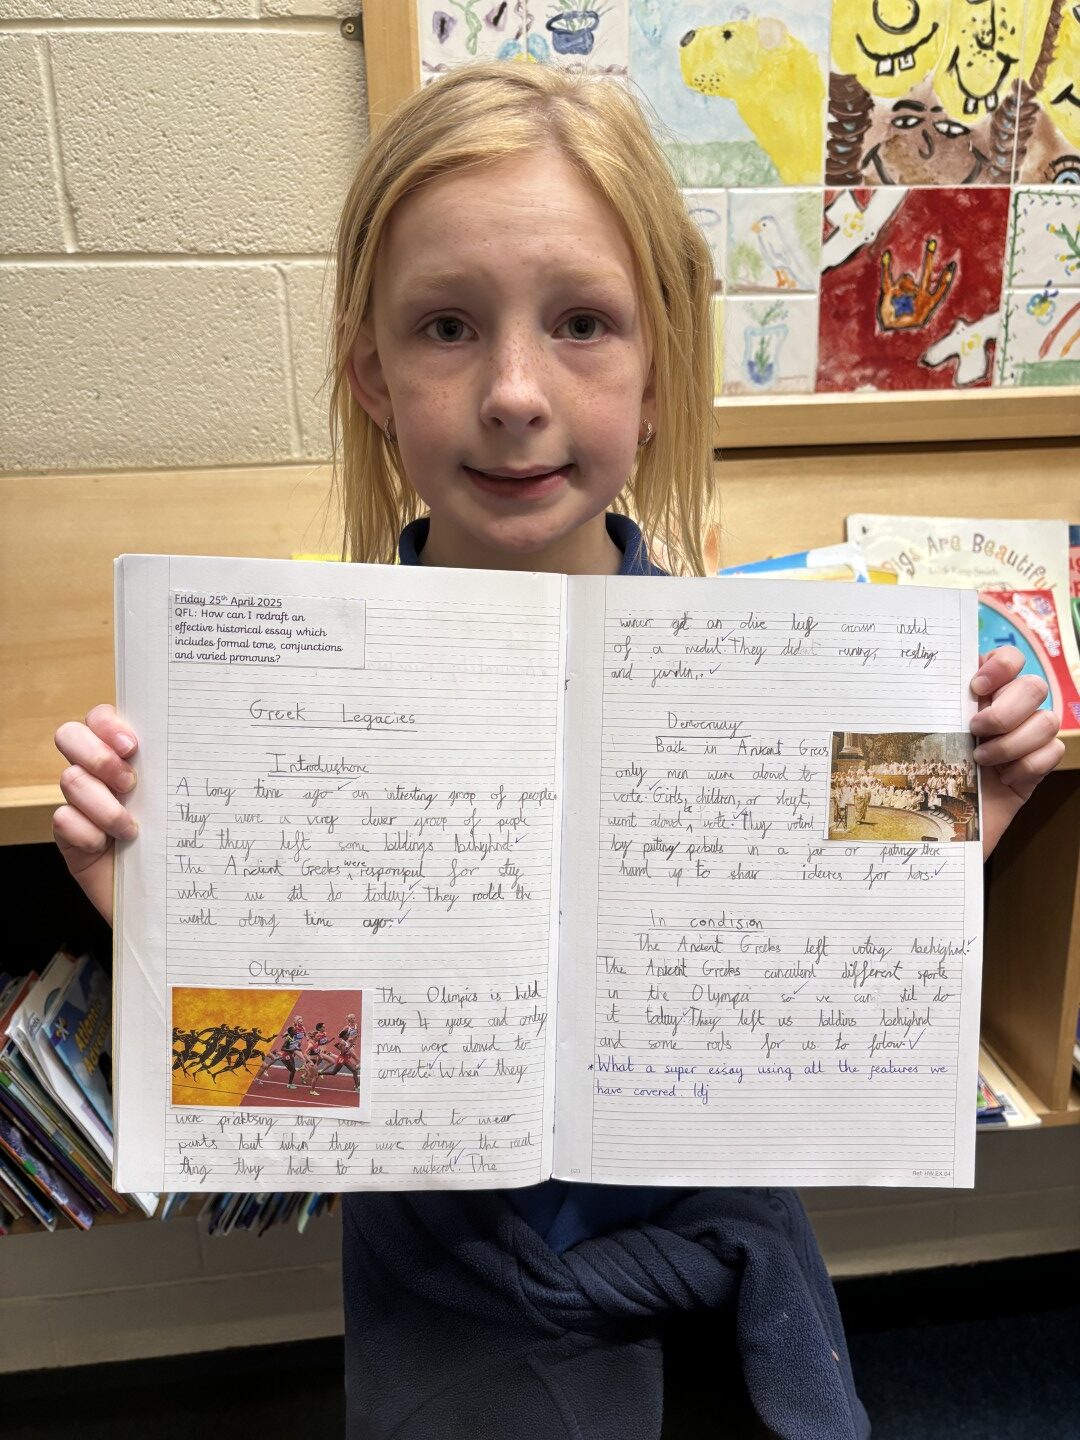 Friday 25th April 2025
QFL: How can I redraft an
effective historical essay which
includes formal tone, conjunctions
and varied pronouns?
Greek Legacies
Introdushone
A long time ago an intresting group of people.
They were a very clever group of people
and they left some bildings behighnd.
The Ancient Greeks were responspul for
what we stil do today. They roold the
world olong time ago.
Olympics
The Olimpics is held
every 4 yerse and only
men were aloud to
compecte. When they
were praktising they were aloud to wear
pants but when they were doing the real
thing they had to be naikerd. The
winer get an olive leaf crown insted
of a medul. They did runing, resling,
and
Democruay
Back in Ancient Grees
only men were aloud to
vote. Girls, children, or
wernt aloud to vote. They voted
by puting pebuls in a jar or puting there
hand up to shair ideeres for lors.
In condision
The Ancient Greeks left voting behighnd.
The Ancient Greeks different sports
in the Olympic so we can stil do
it today. They left us bildins behighnd
and some rools for us to folow.
*What a super essay using all the features we
have covered. ldj
Ref: HW EX 04
Pigs Are Beautiful
Dick King-Smith
Atlantis